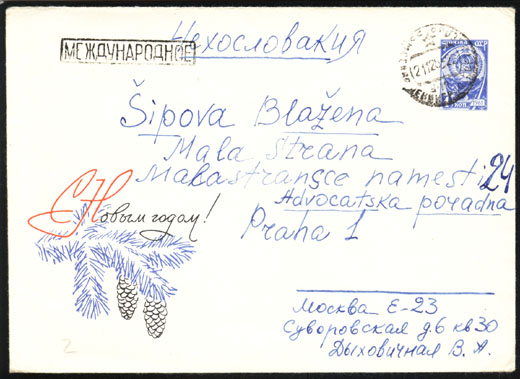 МЕЖДУНАРОДНОЕ
Чехословакия
Šipova Blažena
Mala Strana
Malastransce namesti 24
Advocatska poradna
Praha 1
С Новым годом!
Москва Е-23
Суворовская д.6 кв 30
Дыховичная В. А.
2